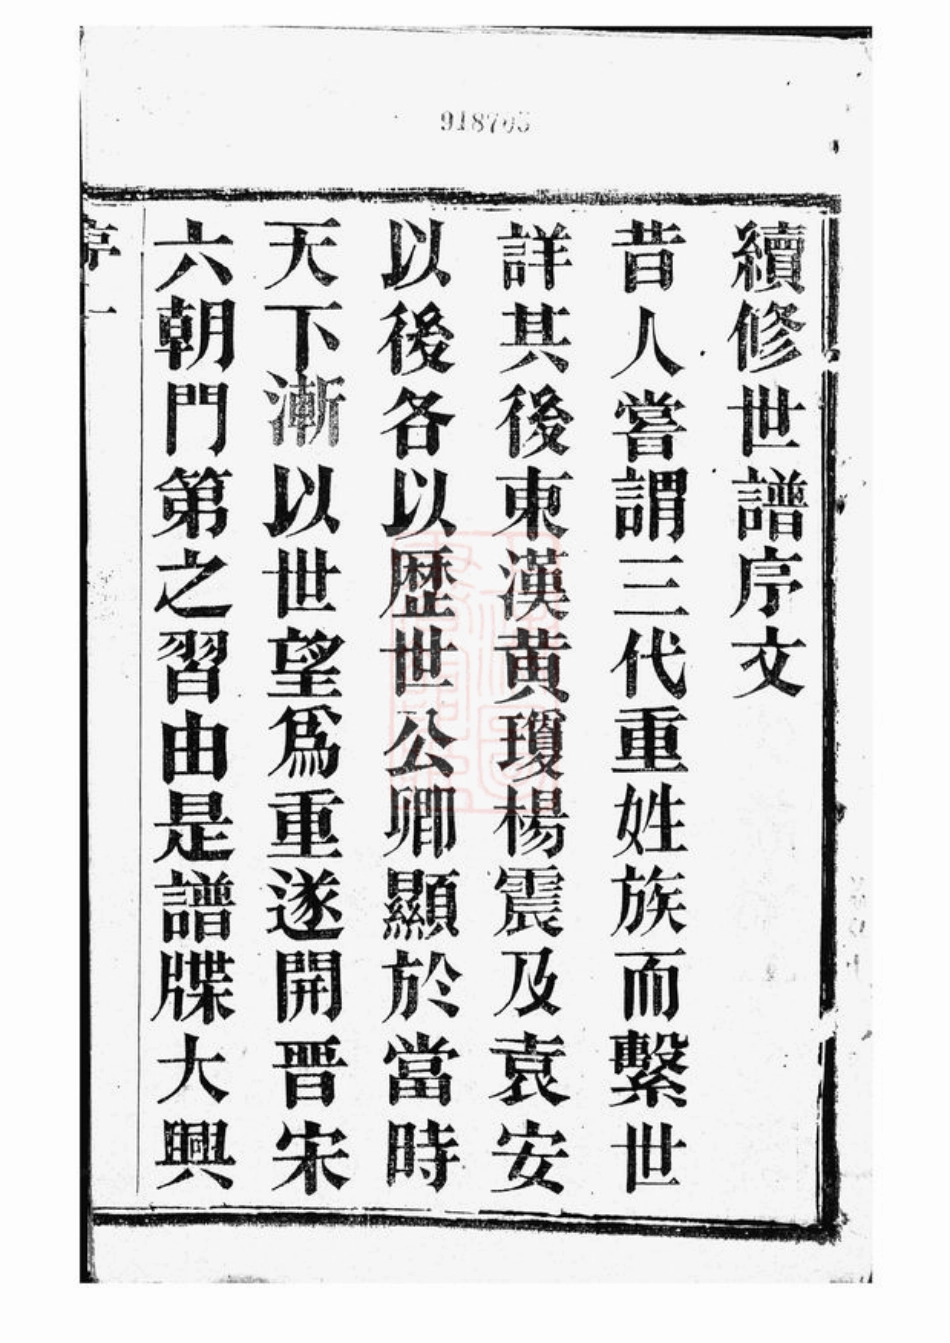 918705
續修世譜序文
昔人嘗謂三代重姓族而繫世
詳其後東漢黄瓊楊震及袁安
以後各以歴世公卿顯於當時
天下漸以世望爲重遂開晋宋
六朝門第之習由是譜牒大興
序 一